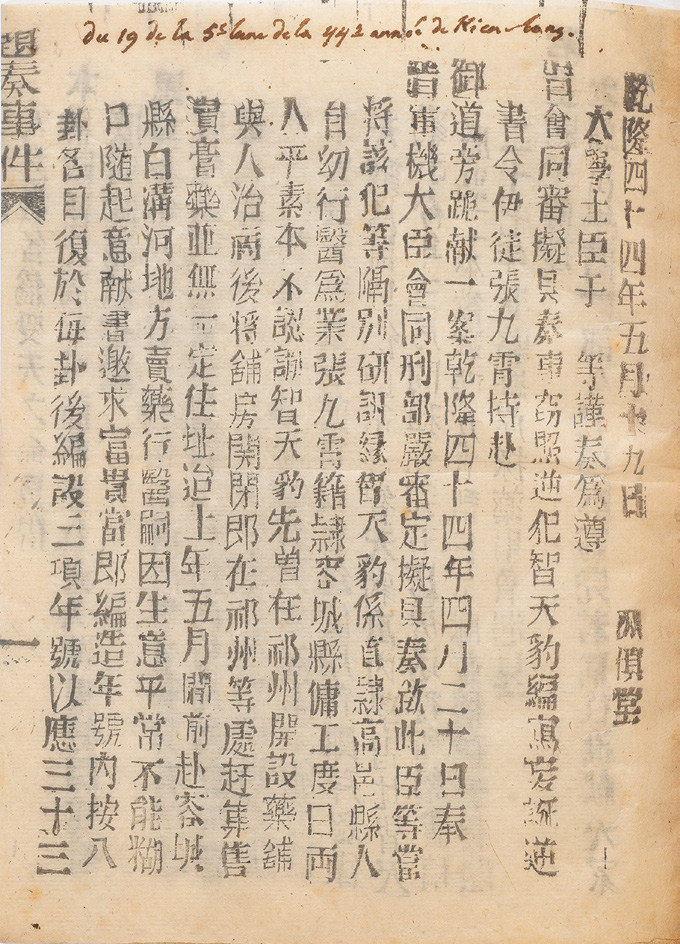 du 19 de la 5e lune de la 44e année de Kien-long.
乾隆四十四年五月十九日 公慎堂
大學士臣于 等謹奏爲遵
旨會同審擬具奏事竊照逆犯智天豹編寫妄誕逆
書令伊徒張九霄持赴
御道旁跪献一案乾隆四十四年四月二十日奉
旨軍機大臣會同刑部嚴審定擬具奏欽此臣等當
將該犯等隔別研訊緣智天豹係直隷高邑縣人
自幼行醫爲業張九霄籍隷容城縣傭工度日両
人平素本不認識智天豹先曽在祁州開設藥舖
與人治病後將舖房関閉即在祁州等處赶集售
賣膏藥並無一定住址迨上年五月間前赴容城
縣白溝河地方賣藥行醫嗣因生意平常不能糊
口隨起意献書邀求富貴當即編造年號内按八
卦各目復於每卦後編設三項年號以應三十三
題奏事件 一